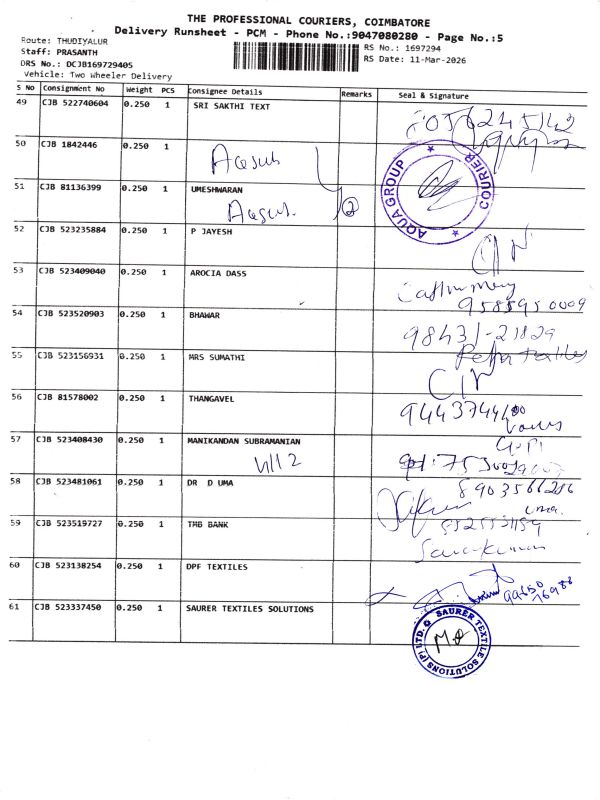 THE PROFESSIONAL COURIERS, COIMBATORE
Delivery Runsheet - PCM - Phone No.:9047080280 - Page No.:5
Route: THUDIYALUR
Staff: PRASANTH
DRS No.: DCJB169729405
Vehicle: Two Wheeler Delivery
RS No.: 1697294
RS Date: 11-Mar-2026
S No Consignment No Weight PCS Consignee Details Remarks Seal & Signature
49 CJB 522740604 0.250 1 SRI SAKTHI TEXT
50 CJB 1842446 0.250 1
51 CJB 81136399 0.250 1 UMESHWARAN
AQUA GROUP * COURIER *
52 CJB 523235884 0.250 1 P JAYESH
53 CJB 523409040 0.250 1 AROCIA DASS
9585950009
54 CJB 523520903 0.250 1 BHAWAR
98431-21829
55 CJB 523156931 0.250 1 MRS SUMATHI
56 CJB 81578002 0.250 1 THANGAVEL
57 CJB 523408430 0.250 1 MANIKANDAN SUBRAMANIAN
58 CJB 523481061 0.250 1 DR D UMA
8903566216
uma.
59 CJB 523519727 0.250 1 TMB BANK
Saravkumar
60 CJB 523138254 0.250 1 DPF TEXTILES
99650
76988
61 CJB 523337450 0.250 1 SAURER TEXTILES SOLUTIONS
SAURER TEXTILE SOLUTIONS (P) LTD.